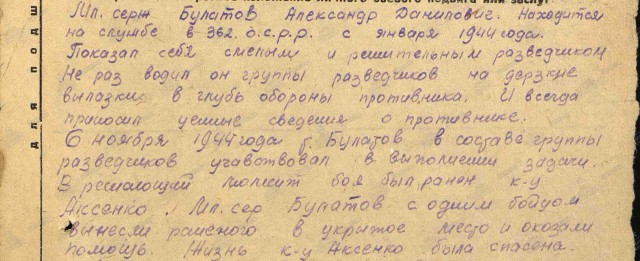 Мл. серж Булатов Александр Данилович. Находится
на службе в 362. о.с.р.р. с января 1944 года.
Показал себя смелым и решительным разведчиком
Не раз водил он группы разведчиков на дерзкие
вылазки в глубь обороны противника. И всегда
приносил ценные сведения о противнике.
6 ноября 1944 года т. Булатов в составе группы
разведчиков участвовал в выполнении задачи.
В решающий момент боя был ранен к-у
Аксенко. Мл. сер Булатов с одним бойцом
вынесли раненого в укрытое место и оказали
помощь. Жизнь к-у Аксенко была спасена.
для подш